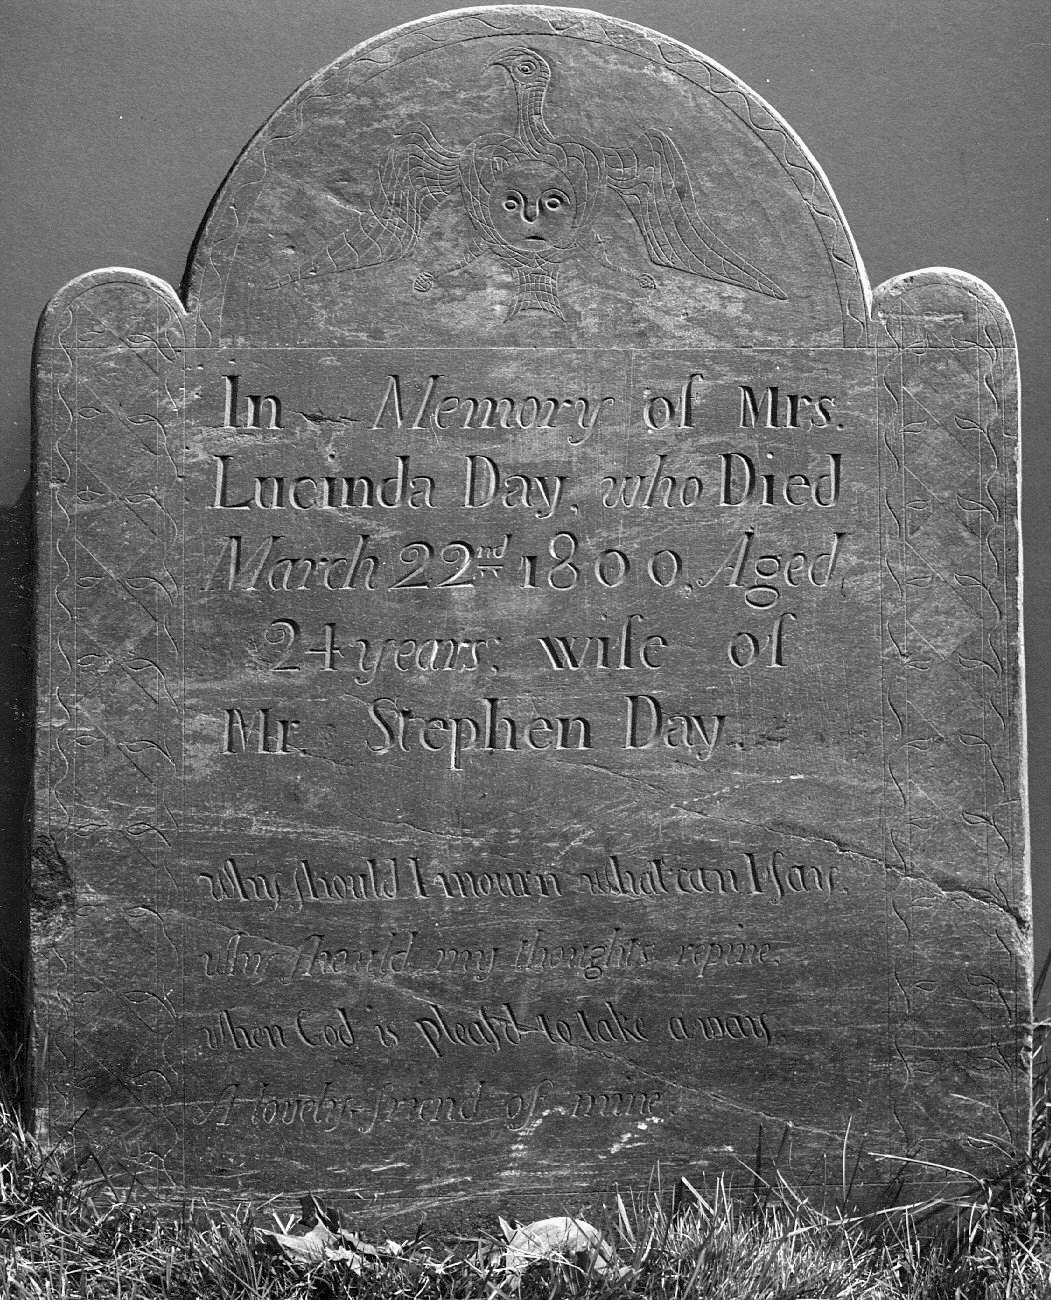 In Memory of Mrs.
Lucinda Day, who Died
March 22nd 1800, Aged
24 years; wife of
Mr. Stephen Day.
why should I mourn what can I say.
why should my thoughts repine.
when God is pleas'd to take away
A lovely friend of mine.